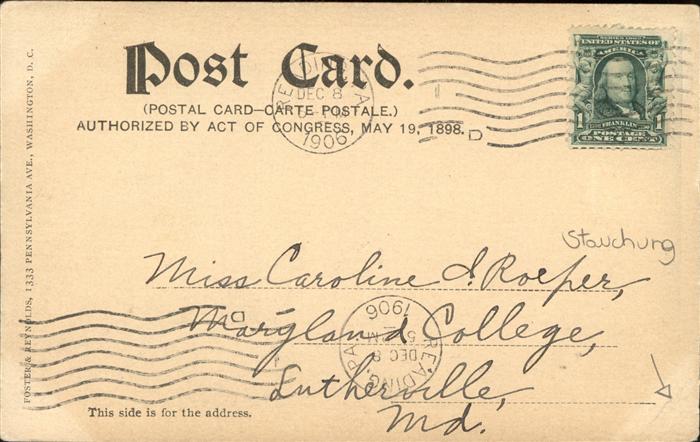 Post Card.
(POSTAL CARD—CARTE POSTALE.)
AUTHORIZED BY ACT OF CONGRESS, MAY 19, 1898.
READING, PA
DEC 8
1906
D
SERIES 1902
UNITED STATES OF
AMERICA
FRANKLIN
1 POSTAGE 1
ONE CENT
Stauchung
Miss Caroline I. Roeper,
Maryland College,
Lutherville,
Md.
READING, PA
DEC 8
5 – M
1906
This side is for the address.
FOSTER & REYNOLDS, 1333 PENNSYLVANIA AVE., WASHINGTON, D. C.